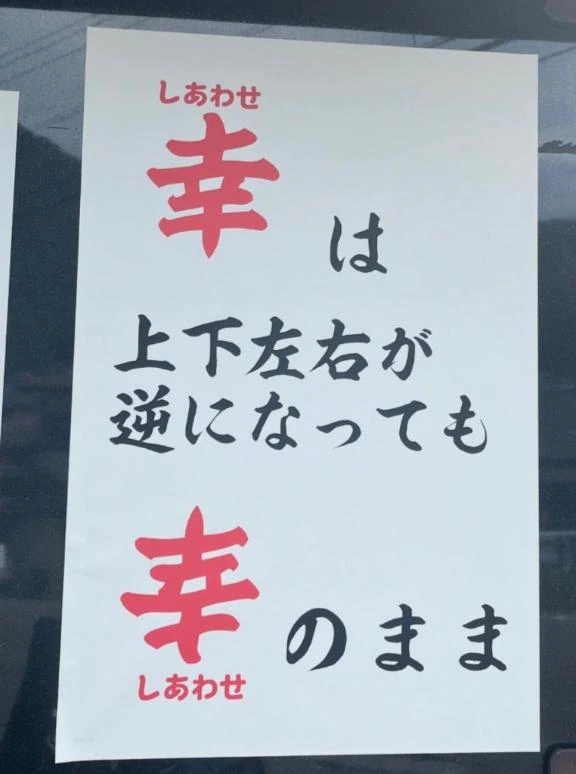 しあわせ
幸は
上下左右が
逆になっても
幸のまま
しあわせ